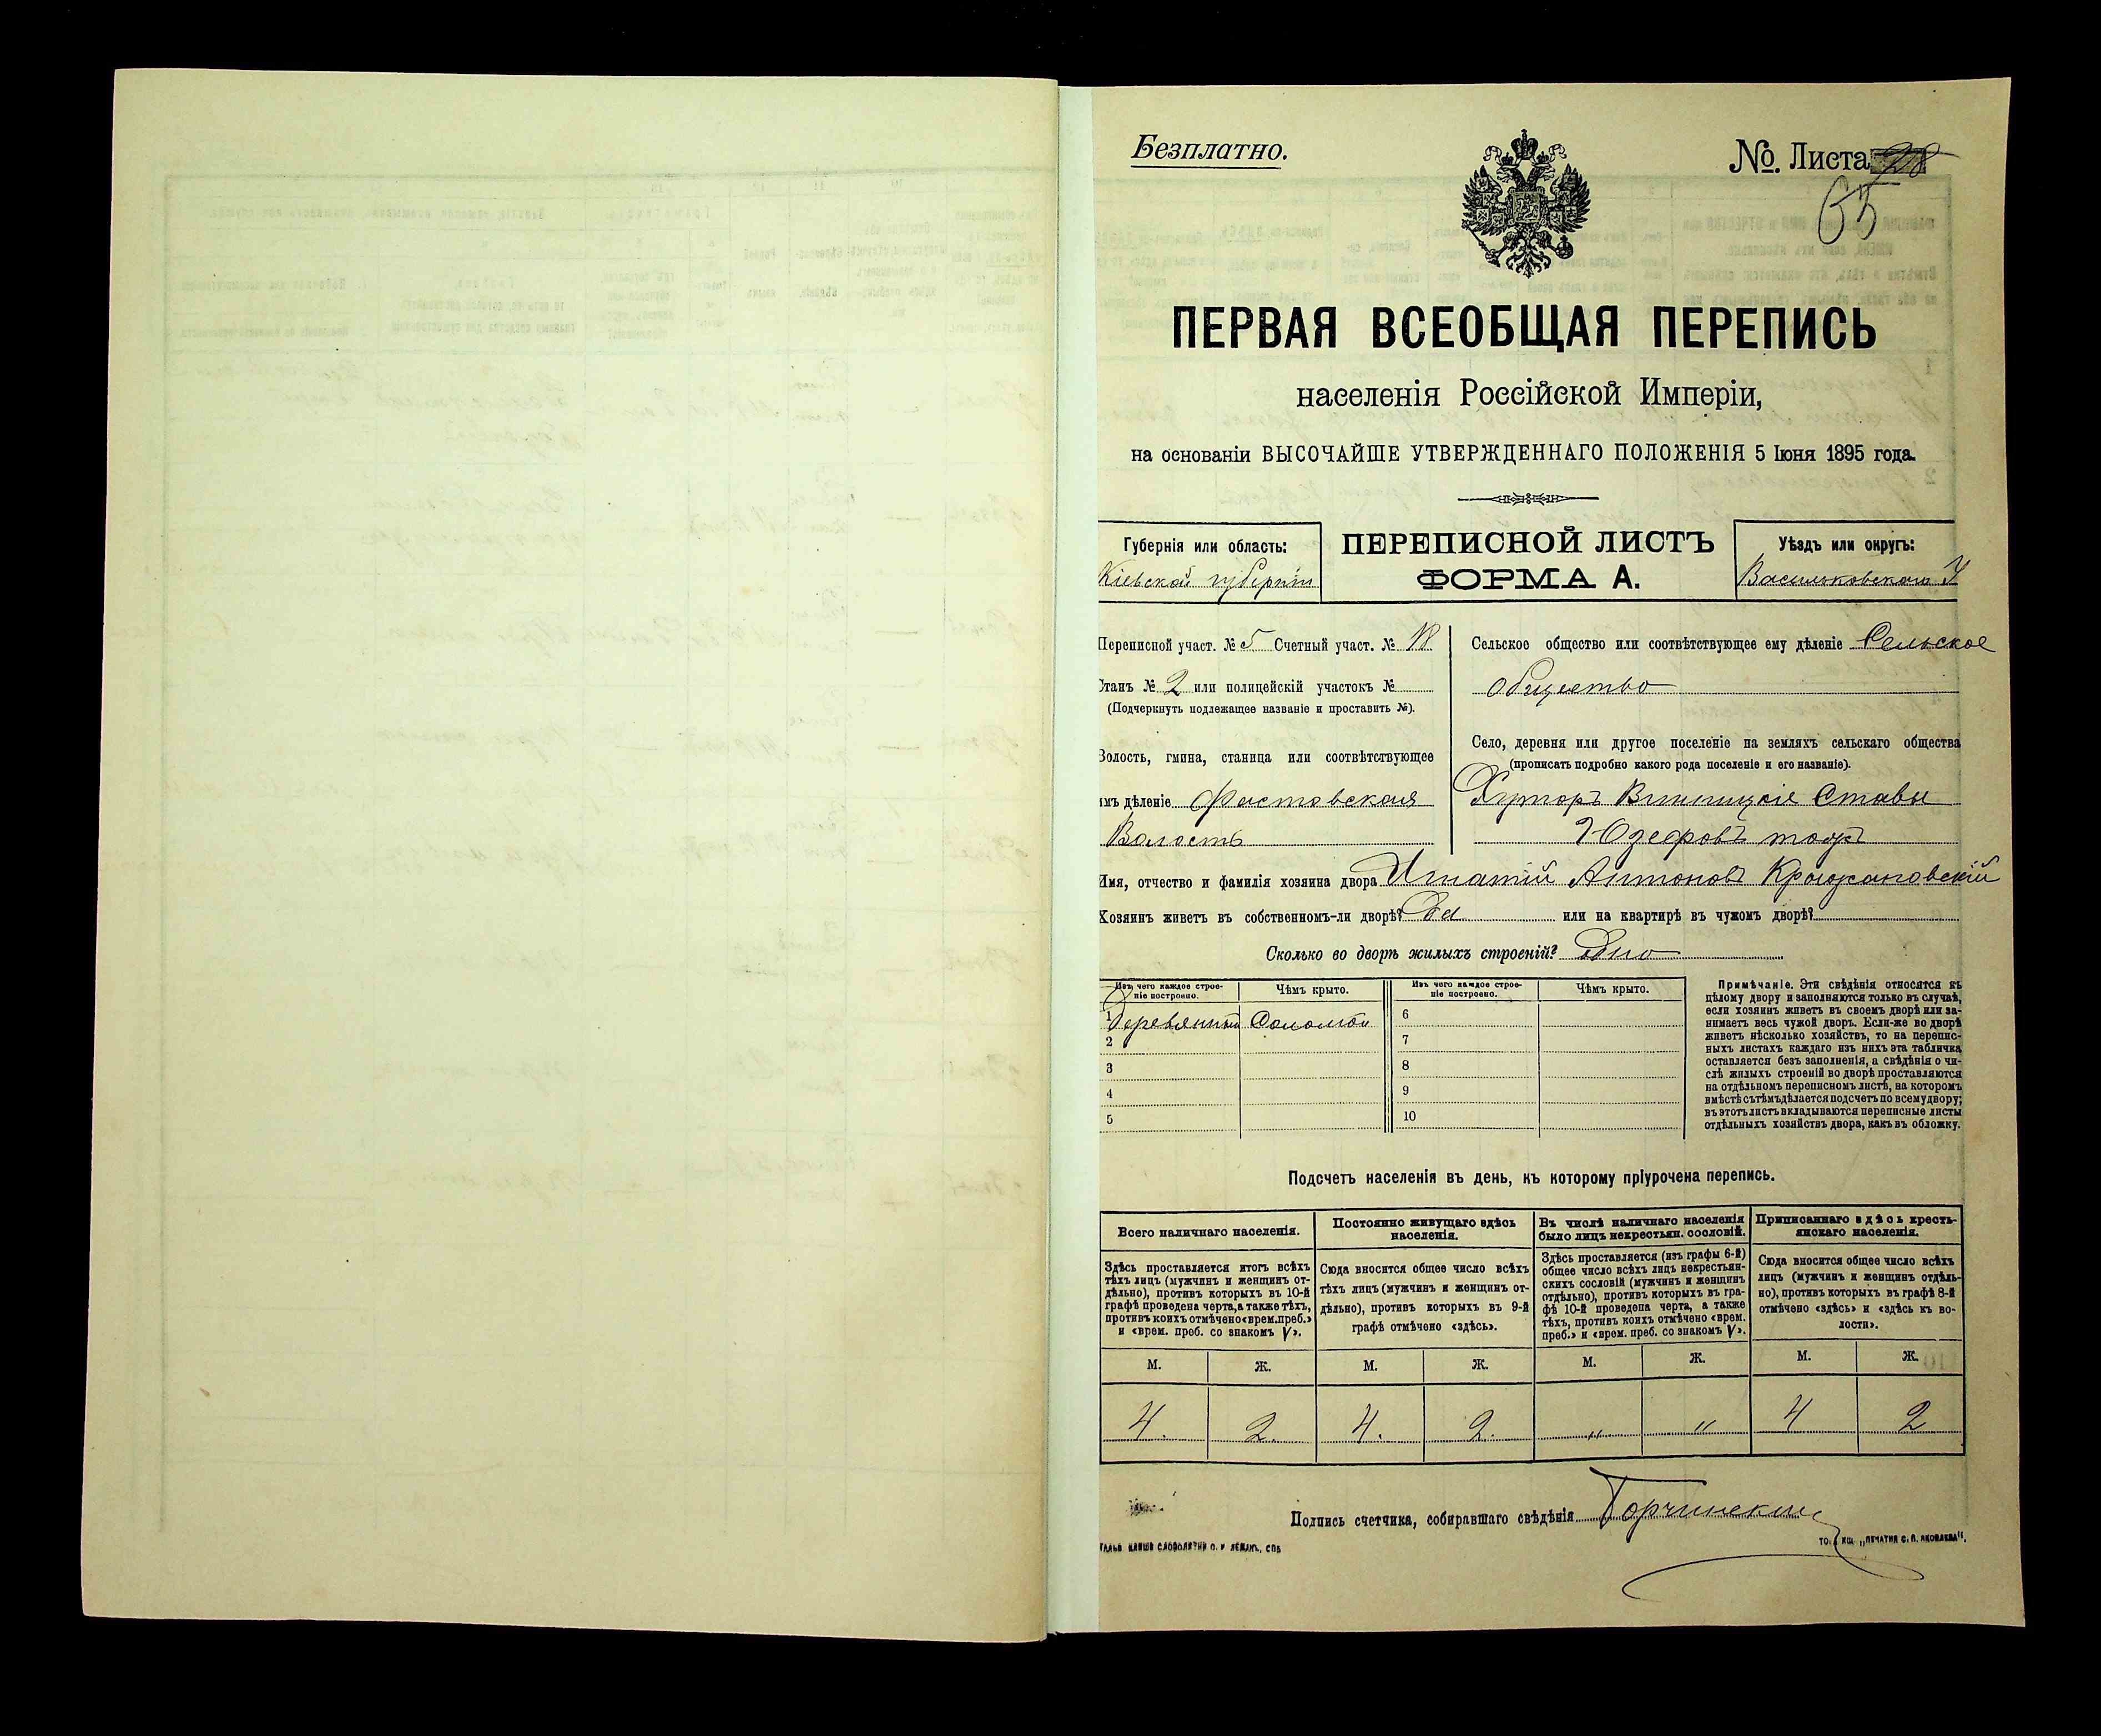 Безплатно.
№. Листа 28
65
ПЕРВАЯ ВСЕОБЩАЯ ПЕРЕПИСЬ
населенія Россійской Имперіи,
на основаніи ВЫСОЧАЙШЕ УТВЕРЖДЕННАГО ПОЛОЖЕНІЯ 5 Іюня 1895 года.
Губернія или область:
Кіевской губерніи
ПЕРЕПИСНОЙ ЛИСТЪ
ФОРМА А.
Уѣздъ или округъ:
Васильковскаго У
Переписной участ. № 5 Счетный участ. № 18
Станъ № 2 или полицейскій участокъ №
(Подчеркнуть подлежащее названіе и проставить №).
Волость, гмина, станица или соотвѣтствующее
имъ дѣленіе Фастовская
Волость
Сельское общество или соотвѣтствующее ему дѣленіе Сельское
общество
Село, деревня или другое поселеніе на земляхъ сельскаго общества
(прописать подробно какого рода поселеніе и его названіе).
Хуторъ Винницкіе Ставы
Юзефовъ тожъ
Имя, отчество и фамилія хозяина двора Игнатій Антоновъ Крыжановскій
Хозяинъ живетъ въ собственномъ-ли дворѣ? Да или на квартирѣ въ чужомъ дворѣ?
Сколько во дворѣ жилыхъ строеній? Одно
Изъ чего каждое строе-
ніе построено.
Чѣмъ крыто.
Изъ чего каждое строе-
ніе построено.
Чѣмъ крыто.
1 Деревянный Соломой
2
3
4
5
6
7
8
9
10
Примѣчаніе. Эти свѣдѣнія относятся къ
цѣлому двору и заполняются только въ случаѣ,
если хозяинъ живетъ въ своемъ дворѣ или за-
нимаетъ весь чужой дворъ. Если-же во дворѣ
живетъ нѣсколько хозяйствъ, то на перепис-
ныхъ листахъ каждаго изъ нихъ эта табличка
оставляется безъ заполненія, а свѣдѣнія о чи-
слѣ жилыхъ строеній во дворѣ проставляются
на отдѣльномъ переписномъ листѣ, на которомъ
вмѣстѣ съ тѣмъ дѣлается подсчетъ по всему двору;
въ этотъ листъ вкладываются переписные листы
отдѣльныхъ хозяйствъ двора, какъ въ обложку.
Подсчетъ населенія въ день, къ которому пріурочена перепись.
Всего наличнаго населенія.
Здѣсь проставляется итогъ всѣхъ
тѣхъ лицъ (мужчинъ и женщинъ от-
дѣльно), противъ которыхъ въ 10-й
графѣ проведена черта, а также тѣхъ,
противъ коихъ отмѣчено «врем. преб.»
и «врем. преб. со знакомъ V».
Постоянно живущаго здѣсь
населенія.
Сюда вносится общее число всѣхъ
тѣхъ лицъ (мужчинъ и женщинъ от-
дѣльно), противъ которыхъ въ 9-й
графѣ отмѣчено «здѣсь».
Въ числѣ наличнаго населенія
было лицъ некрестьян. сословій.
Здѣсь проставляется (изъ графы 6-й)
общее число всѣхъ лицъ некрестьян-
скихъ сословій (мужчинъ и женщинъ
отдѣльно), противъ которыхъ въ гра-
фѣ 10-й проведена черта, а также
тѣхъ, противъ коихъ отмѣчено «врем.
преб.» и «врем. преб. со знакомъ V».
Приписаннаго здѣсь кресть-
янскаго населенія.
Сюда вносится общее число всѣхъ
лицъ (мужчинъ и женщинъ отдѣль-
но), противъ которыхъ въ графѣ 8-й
отмѣчено «здѣсь» и «здѣсь къ во-
лости».
М. Ж. М. Ж. М. Ж. М. Ж.
4. 2. 4. 2. " " 4 2
Подпись счетчика, собиравшаго свѣдѣнія Горчинскій